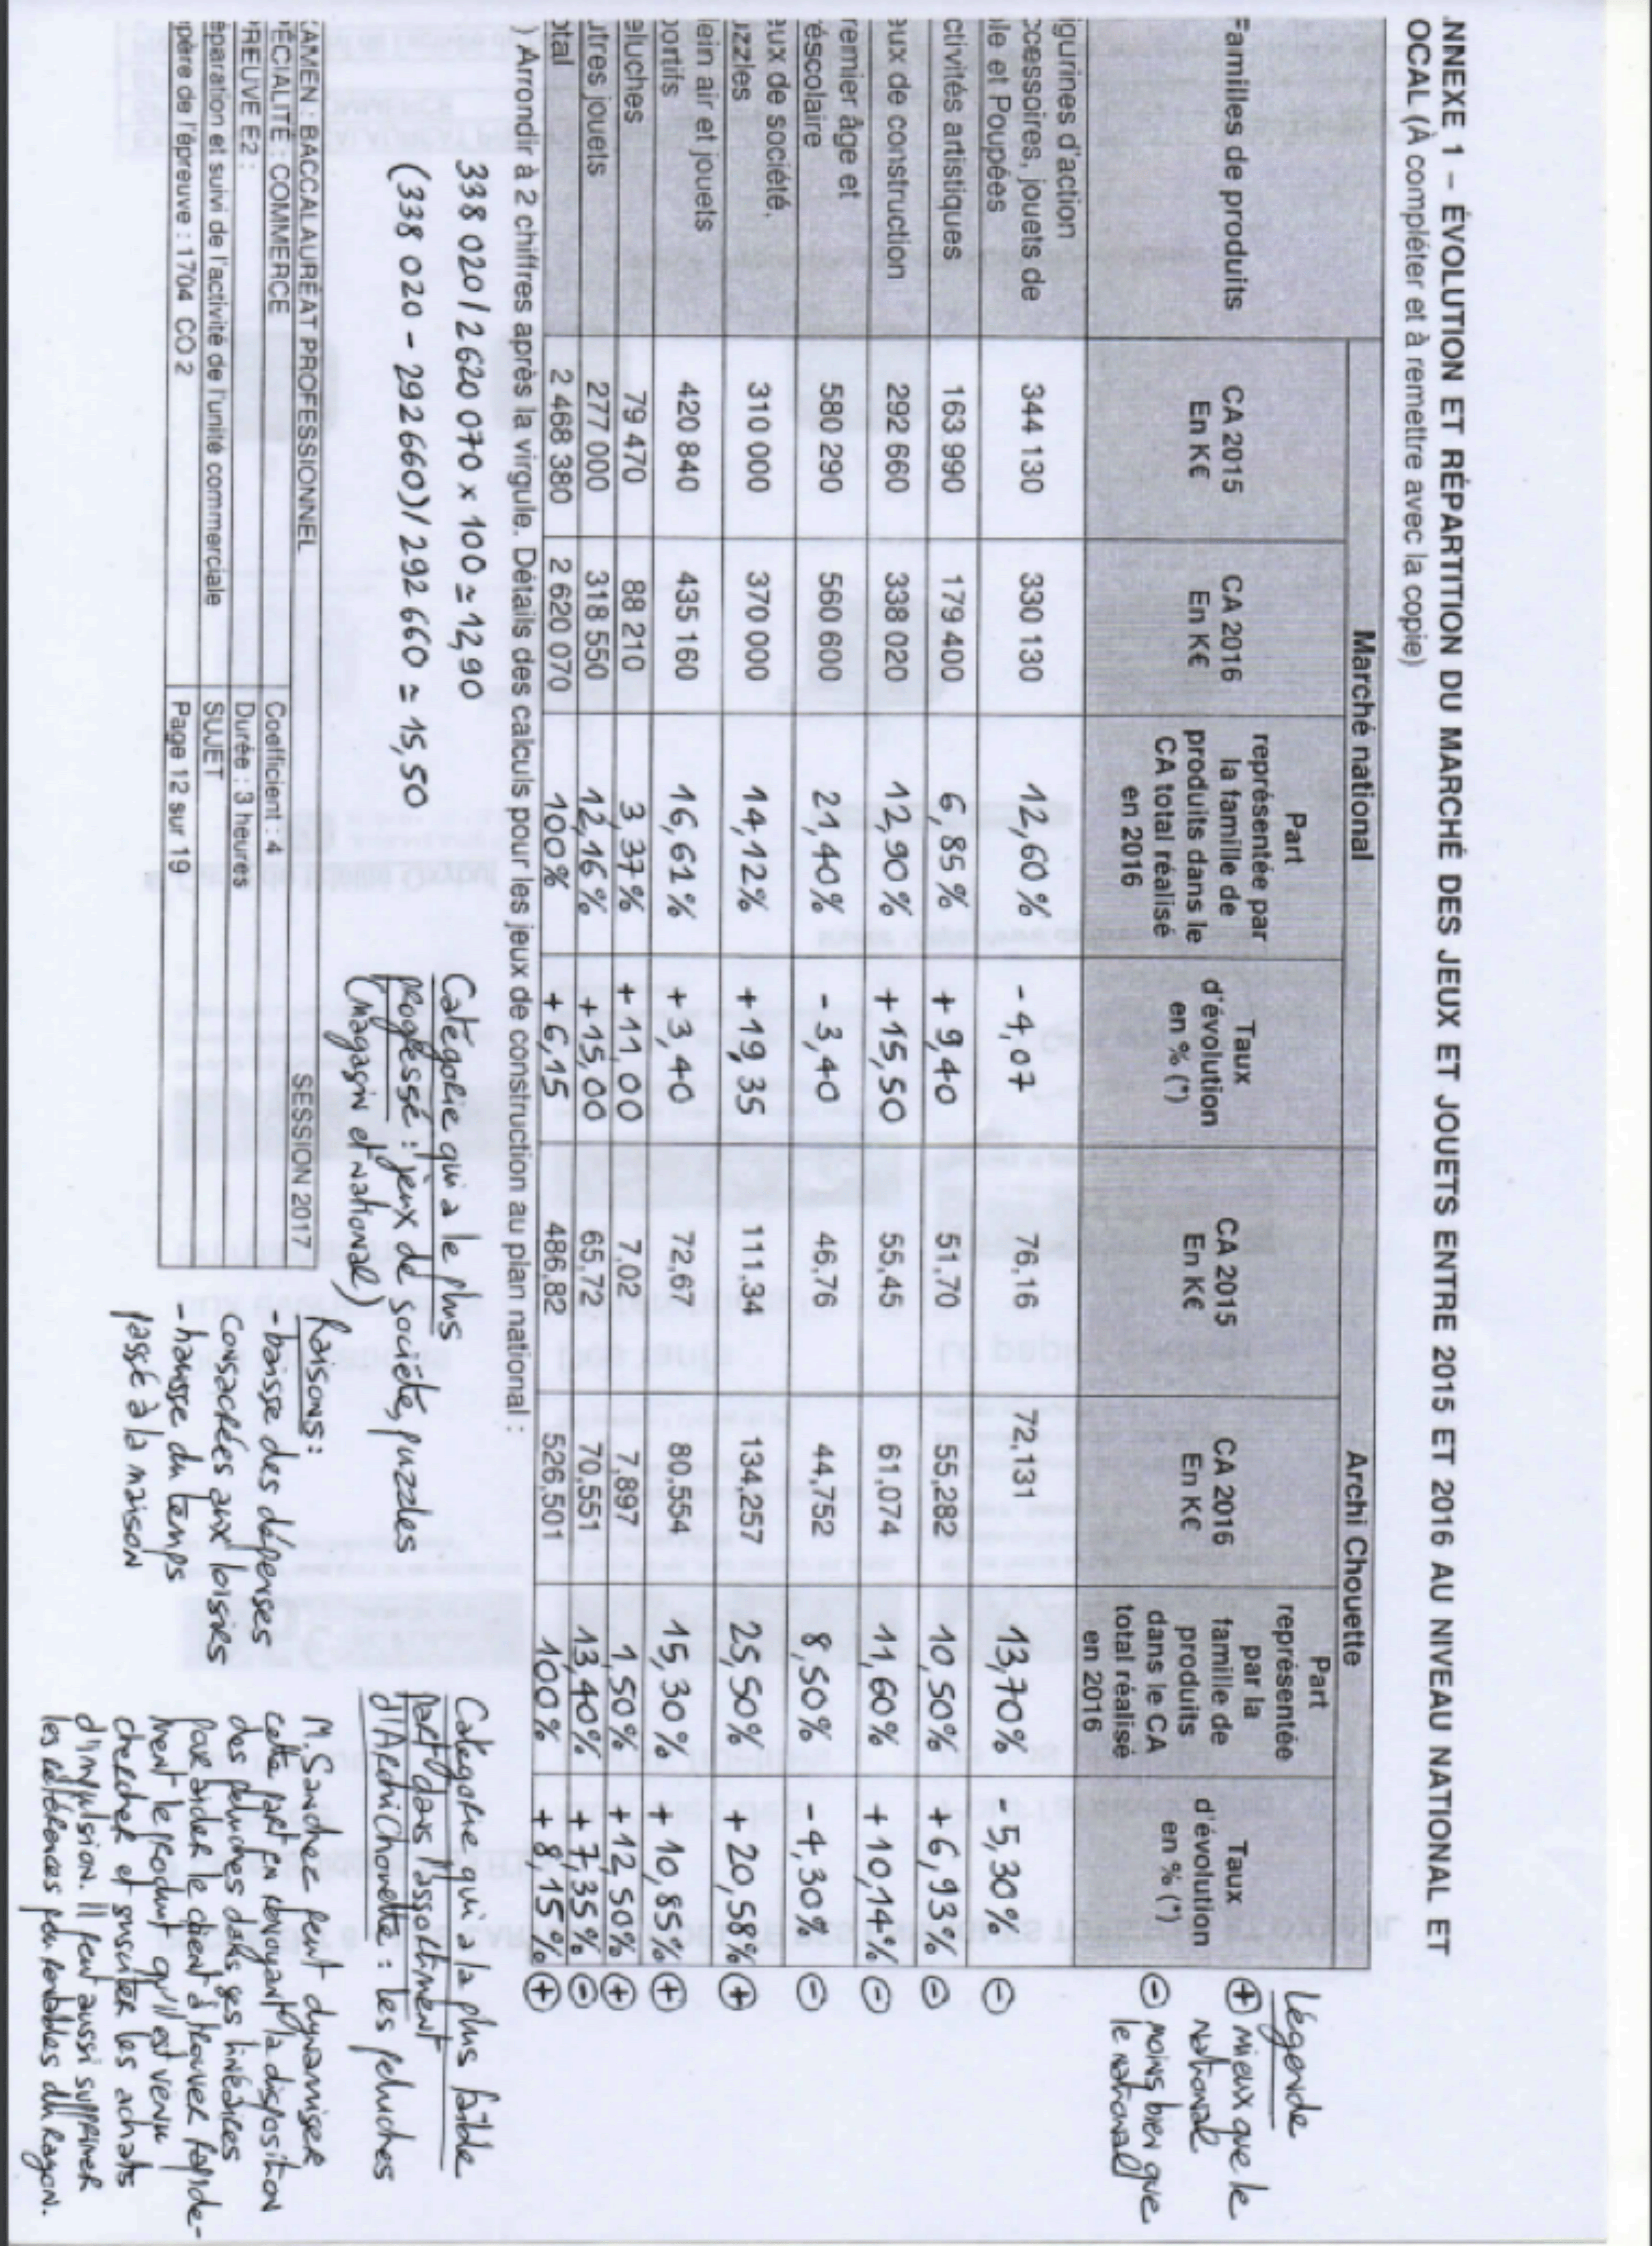 NNEXE 1 – ÉVOLUTION ET RÉPARTITION DU MARCHÉ DES JEUX ET JOUETS ENTRE 2015 ET 2016 AU NIVEAU NATIONAL ET
OCAL (À compléter et à remettre avec la copie)
Marché national Archi Chouette
Familles de produits
CA 2015
En K€
CA 2016
En K€
Part
représentée par
la famille de
produits dans le
CA total réalisé
en 2016
Taux
d'évolution
en % (*)
CA 2015
En K€
CA 2016
En K€
Part
représentée
par la
famille de
produits
dans le CA
total réalisé
en 2016
Taux
d'évolution
en % (*)
Légende
+ mieux que le
national
- moins bien que
le national
igurines d'action
ccessoires, jouets de
ille et Poupées
344 130 330 130 12,60 % - 4,07 76,16 72,131 13,70% - 5,30 % -
ctivités artistiques 163 990 179 400 6,85 % + 9,40 51,70 55,282 10,50% + 6,93% -
eux de construction 292 660 338 020 12,90 % + 15,50 55,45 61,074 11,60% + 10,14% -
remier âge et
réscolaire
580 290 560 600 21,40% - 3,40 46,76 44,752 8,50% - 4,30% -
eux de société,
uzzles
310 000 370 000 14,12% + 19,35 111,34 134,257 25,50% + 20,58% +
lein air et jouets
portifs
420 840 435 160 16,61% + 3,40 72,67 80,554 15,30 % + 10,85% +
eluches 79 470 88 210 3,37% + 11,00 7,02 7,897 1,50% + 12,50% +
utres jouets 277 000 318 550 12,16% + 15,00 65,72 70,551 13,40% + 7,35% -
otal 2 468 380 2 620 070 100% + 6,15 486,82 526,501 100% + 8,15% +
) Arrondir à 2 chiffres après la virgule. Détails des calculs pour les jeux de construction au plan national :
338 020 / 2 620 070 x 100 ≃ 12,90
(338 020 - 292 660) / 292 660 ≃ 15,50
Catégorie qui a le plus
progressé : jeux de société, puzzles
(magasin et national)
Raisons :
- baisse des dépenses
consacrées aux loisirs
- hausse du temps
passé à la maison
Catégorie qui a la plus faible
part dans l'assortiment
d'Archi Chouette : les peluches
M. Sanchez peut dynamiser
cette part en revoyant la disposition
des peluches dans ses linéaires
pour aider le client à trouver rapide-
ment le produit qu'il est venu
chercher et susciter les achats
d'impulsion. Il peut aussi supprimer
les références peu rentables du rayon.
AMEN : BACCALAURÉAT PROFESSIONNEL SESSION 2017
ÉCIALITÉ : COMMERCE Coefficient : 4
REUVE E2 : Durée : 3 heures
éparation et suivi de l'activité de l'unité commerciale SUJET
père de l'épreuve : 1704 CO 2 Page 12 sur 19